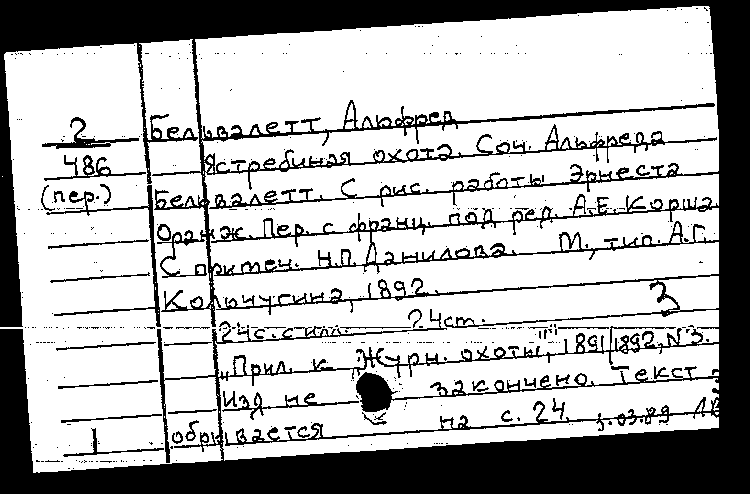 2 Бельвалетт, Альфред
486 Ястребиная охота. Соч. Альфреда
(пер.) Бельвалетт. С рис. работы Эрнеста
Оранж. Пер. с франц. под ред. А.Е. Корша.
С примеч. Н.П. Данилова. М., тип. А.Г.
Кольчугина, 1892.
24с. с илл. 24ст. 3
"Прил. к "Журн. охоты", 1891/1892, №3.
Изд. не закончено. Текст
1 обрывается на с. 24. 1.03.89